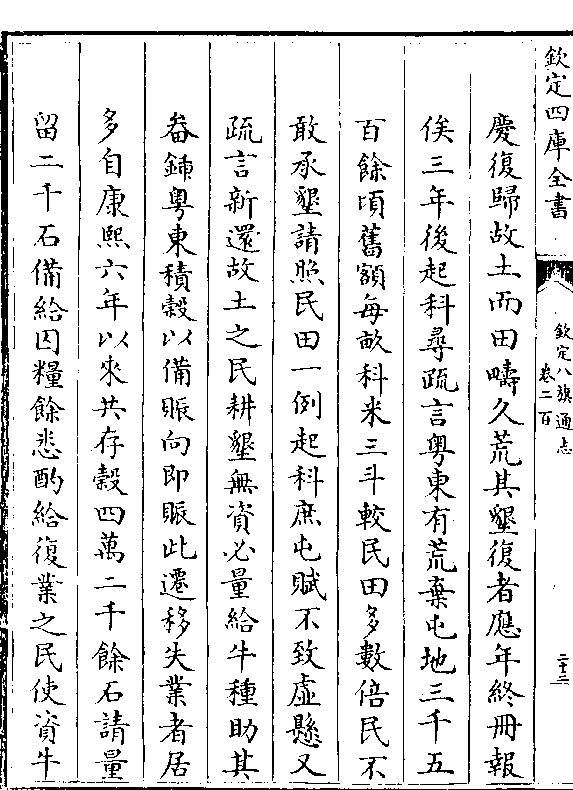 欽定四庫全書
欽定八旗通志
卷二百
二十三
慶復歸故土而田疇久荒其墾復者應年終冊報
俟三年後起科尋疏言粵東有荒棄屯地三千五
百餘頃舊額每畝科米三斗較民田多數倍民不
敢承墾請照民田一例起科庶屯賦不致虛懸又
疏言新還故土之民耕墾無資必量給牛種助其
畚鍤粵東積穀以備賑向即賑此遷移失業者居
多自康熙六年以來共存穀四萬二千餘石請量
留二千石備給囚糧餘悉酌給復業之民使資牛